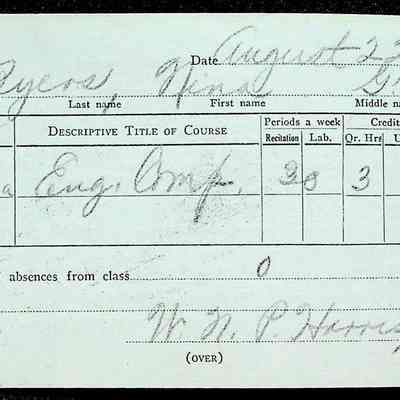 Date August 22
Ryers, Nina G.
Last name First name Middle n
DESCRIPTIVE TITLE OF COURSE Periods a week Credit
Recitation Lab. Qr. Hrs U
a Eng. Comp. 3 3
absences from class 0
W. N. P. Harris
(OVER)